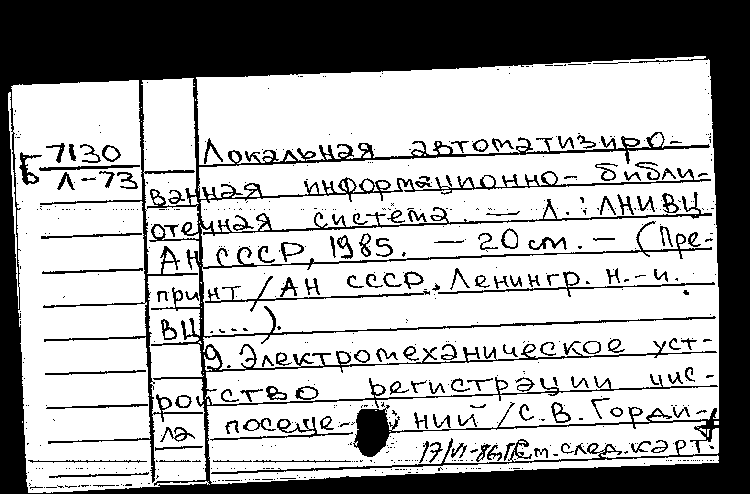 Б 7130
Л-73
Локальная автоматизиро-
ванная информационно-библи-
отечная система. — Л.: ЛНИВЦ
АН СССР, 1985. — 20 см. — (Пре-
принт / АН СССР, Ленингр. н.-и.
ВЦ .... ).
9. Электромеханическое уст-
ройство регистрации чис-
ла посеще-ний / С.В. Горди-
17/VI-86 См. след. карт.